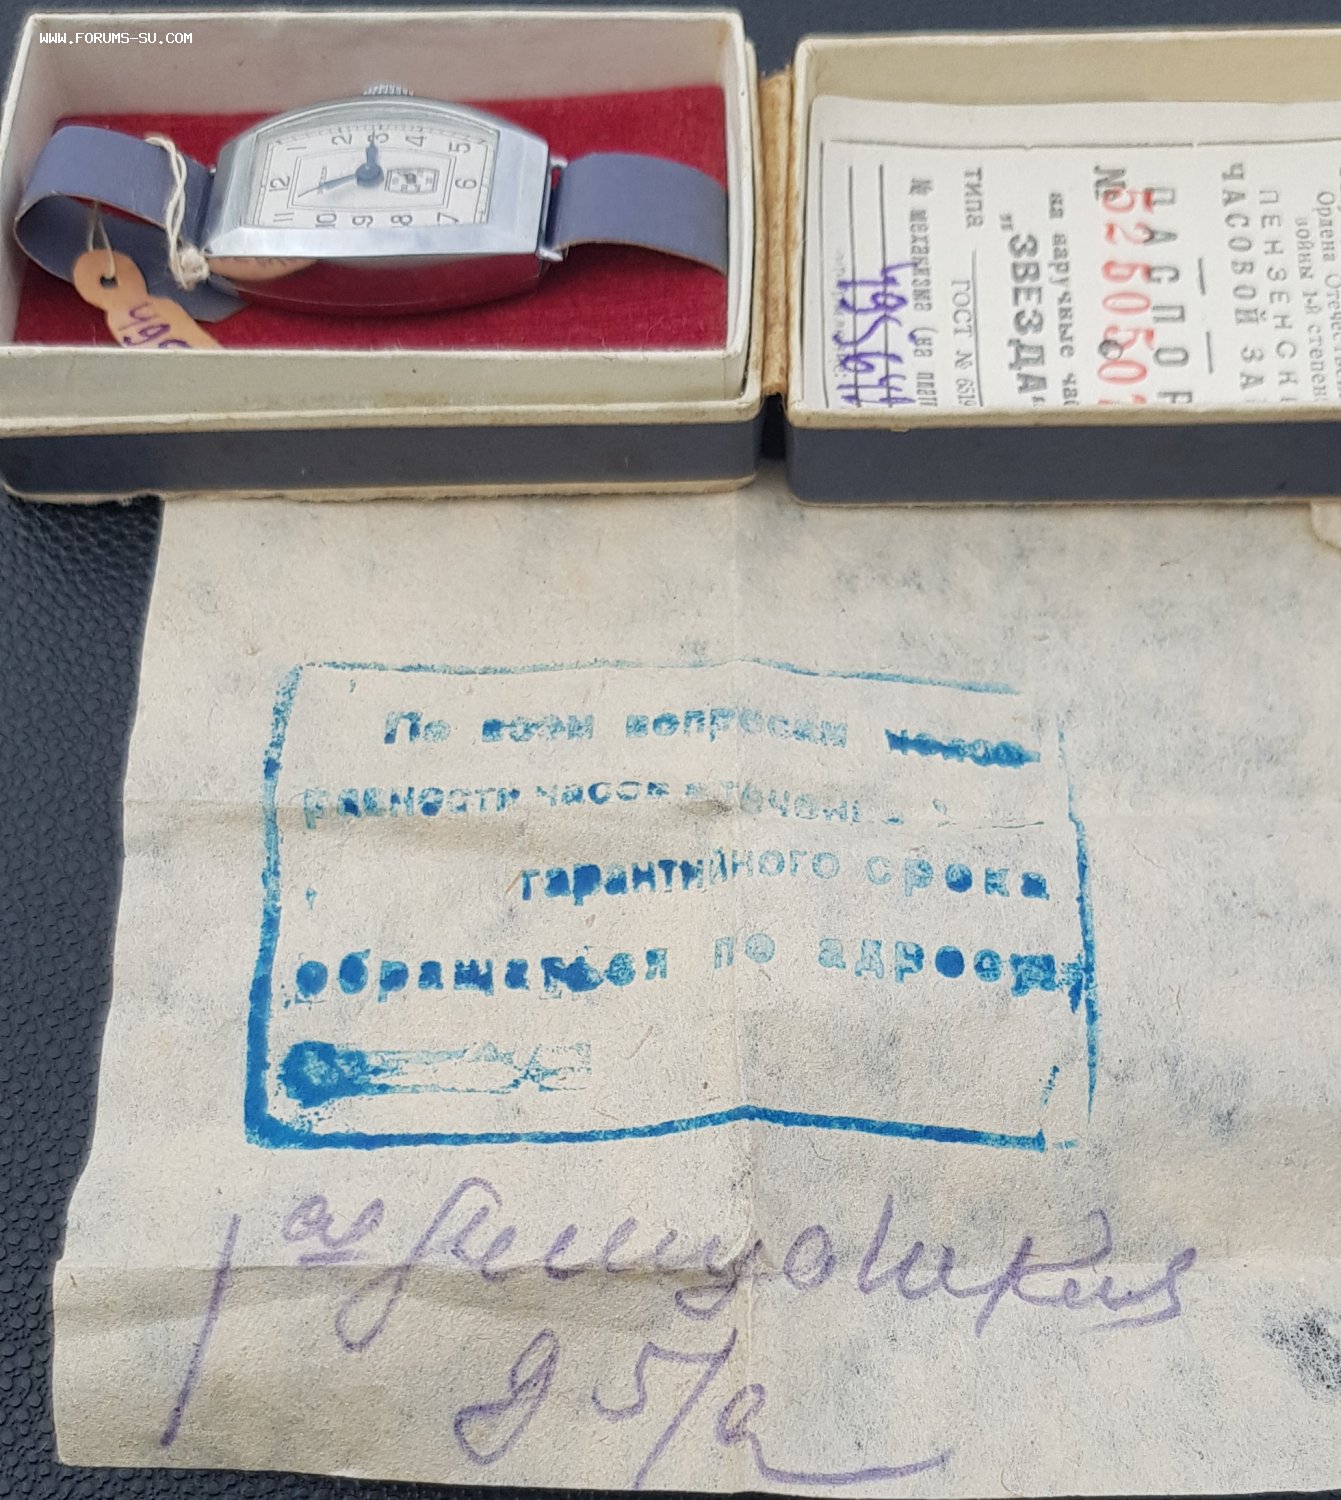 WWW.FORUMS-SU.COM
1 2 3 4 5 6 7 8 9 10 11 12
Ордена Отечест
войны 1-й степен
ПЕНЗЕНСКИ
ЧАСОВОЙ ЗА
ПАСПОР
№ 526050
на наручные час
"ЗВЕЗДА"
типа ГОСТ № 6519
№ механизма (на плат
495641
По всем вопросам
равности часов в течение
гарантийного срока
обращаться по адресу
1ая
д 5/а